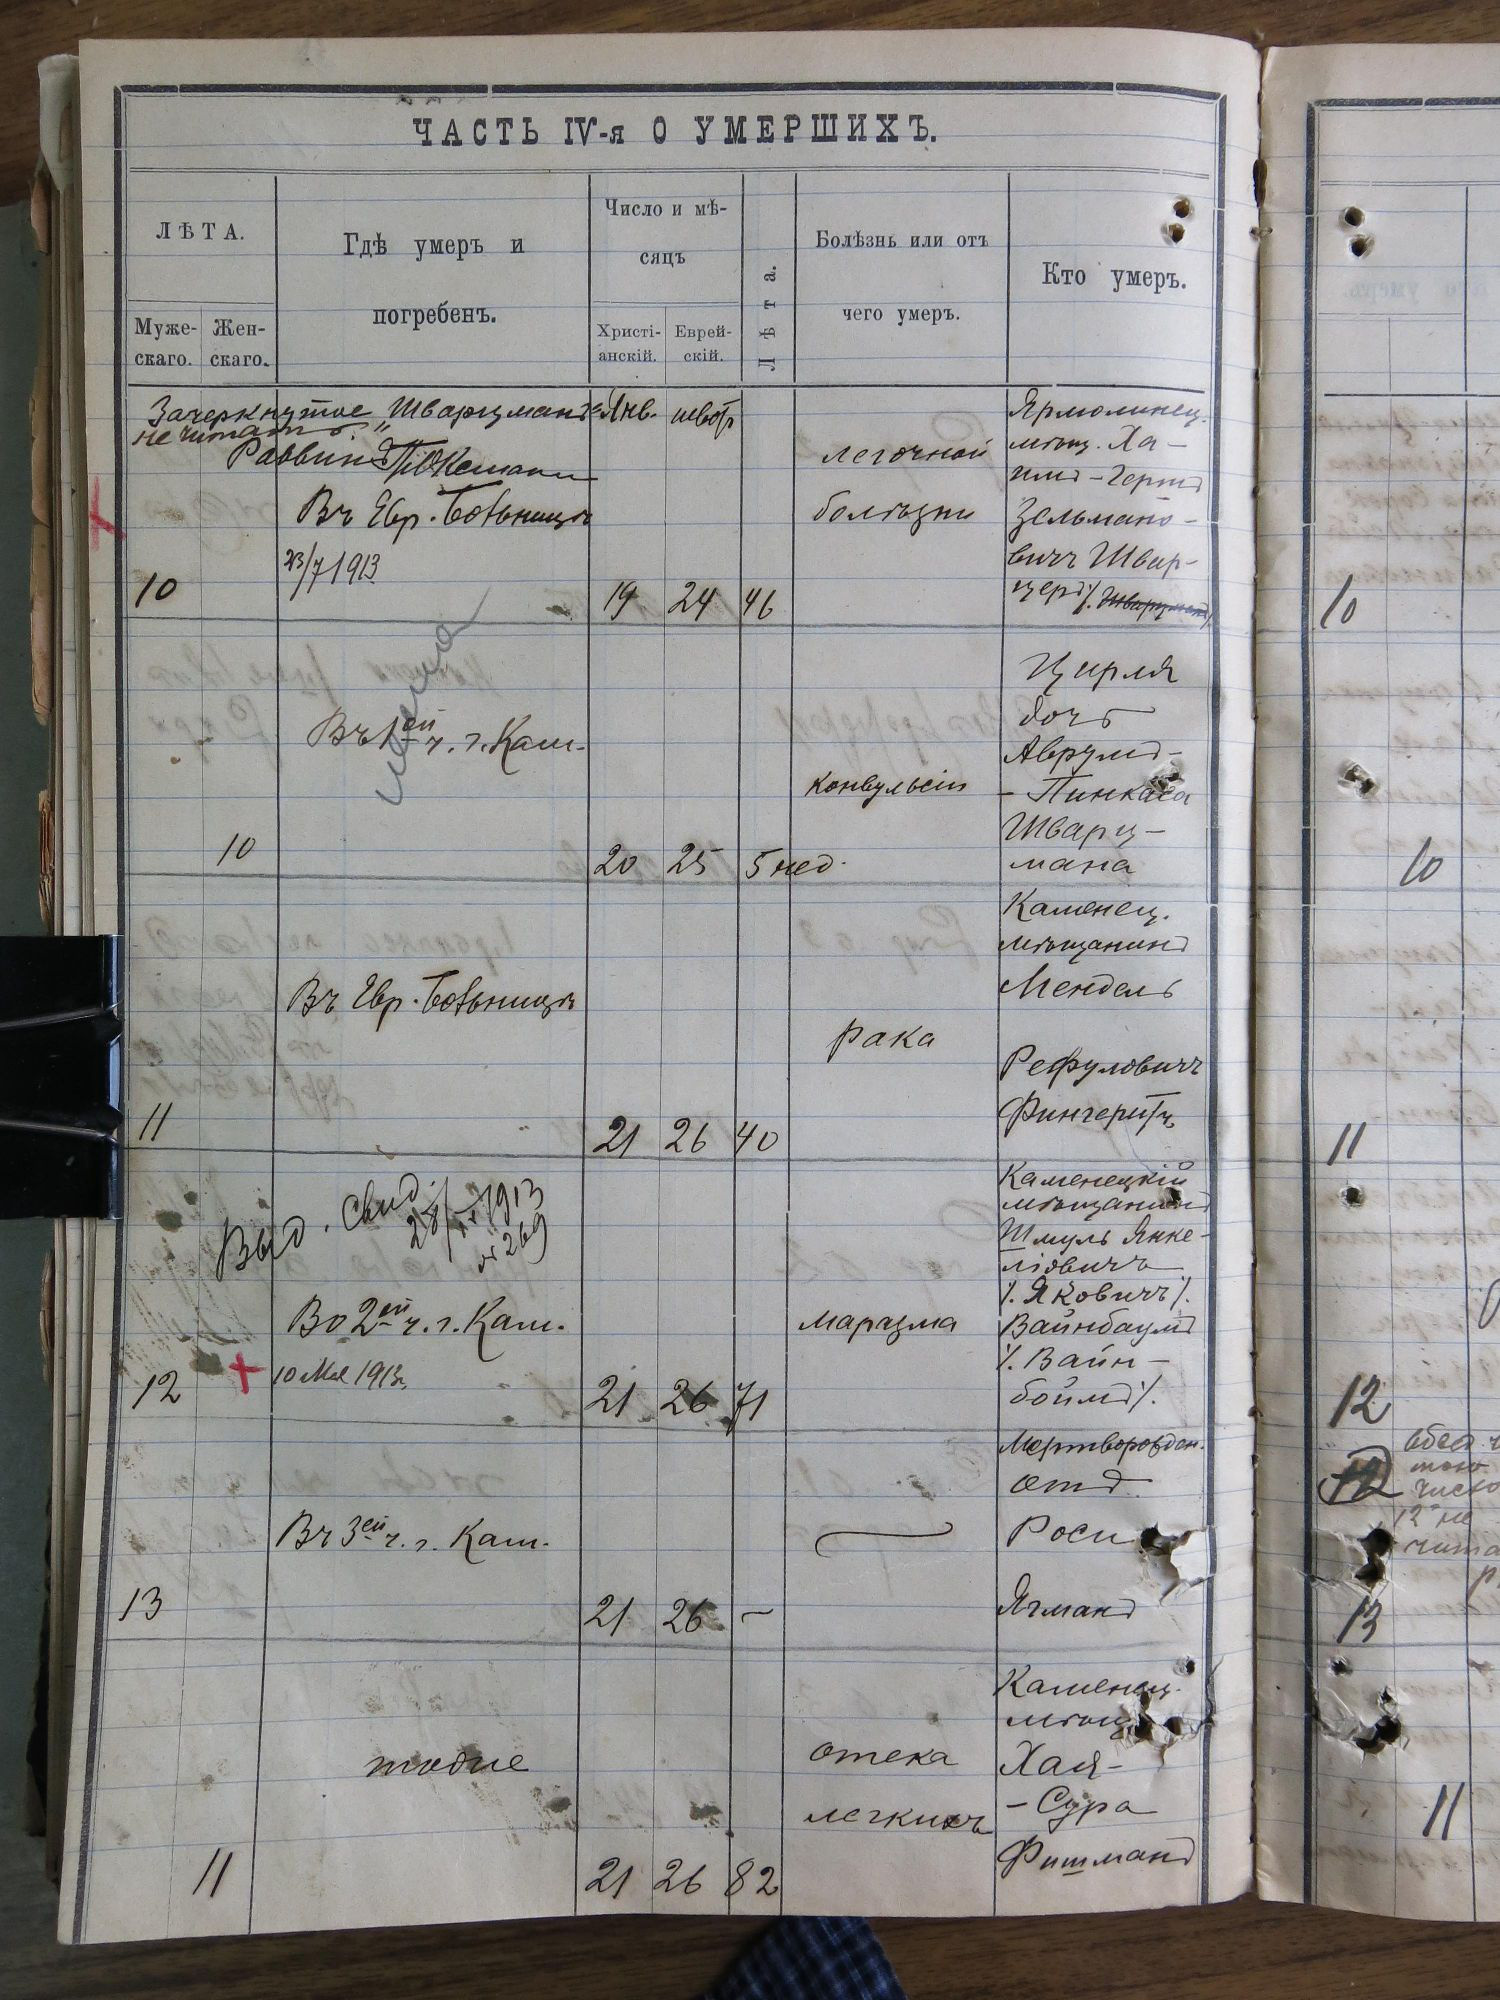 ЧАСТЬ IV-я О УМЕРШИХЪ.
ЛѢТА.
Муже-
скаго.
Жен-
скаго.
Гдѣ умеръ и
погребенъ.
Число и мѣ-
сяцъ
Христі-
анскій.
Еврей-
скій.
Лѣта.
Болѣзнь или отъ
чего умеръ.
Кто умеръ.
Зачеркнутое „Шварцманъ“
не читать.
Раввинъ
Янв.
шеват
Въ Евр. больницѣ
23/7 1913
10
19
24
46
легочной
болѣзни
Ярмолинец.
мѣщ. Ха-
имъ-Гершъ
Зельмано-
вичъ Швар-
церъ ./. Шварцманъ ./.
Въ 1ей ч. г. Кам.
10
20
25
5 нед.
конвульсіи
Цирля
дочь
Аврумъ-
- Пинкаса
Шварц-
мана
Въ Евр. больницѣ
11
21
26
40
рака
Каменец.
мѣщанинъ
Мендель
Рефуловичъ
Фингерутъ
Выд. Свид.
28/IV 1913
№ 269
Во 2ей ч. г. Кам.
10 Мая 1913 г.
12
21
26
71
маразма
Каменецкій
мѣщанинъ
Шмуль Янке-
лiовичъ
./. Яковичъ ./.
Вайнбаумъ
./. Вайн-
боймъ ./.
Въ 3ей ч. г. Кам.
13
21
26
-
Мертворожден.
отъ
Роси
Ягманъ
тодіе
11
21
26
82
отека
легкихъ
Каменец.
мѣщ.
Хая-
- Сура
Фишманъ
10
10
11
12
12
число
12 не
чита
13
11